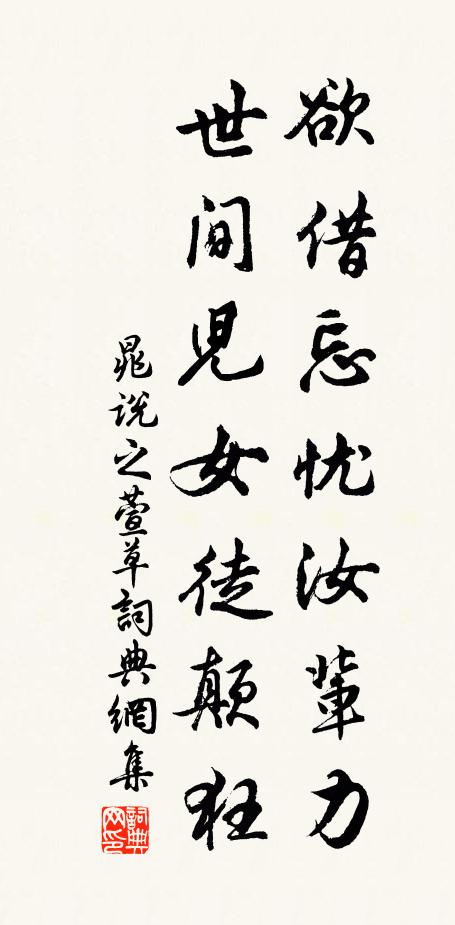 欲借忘忧汝輩力
世间児女徒颠狂
晁说之萱草詞典網集
詞典网印